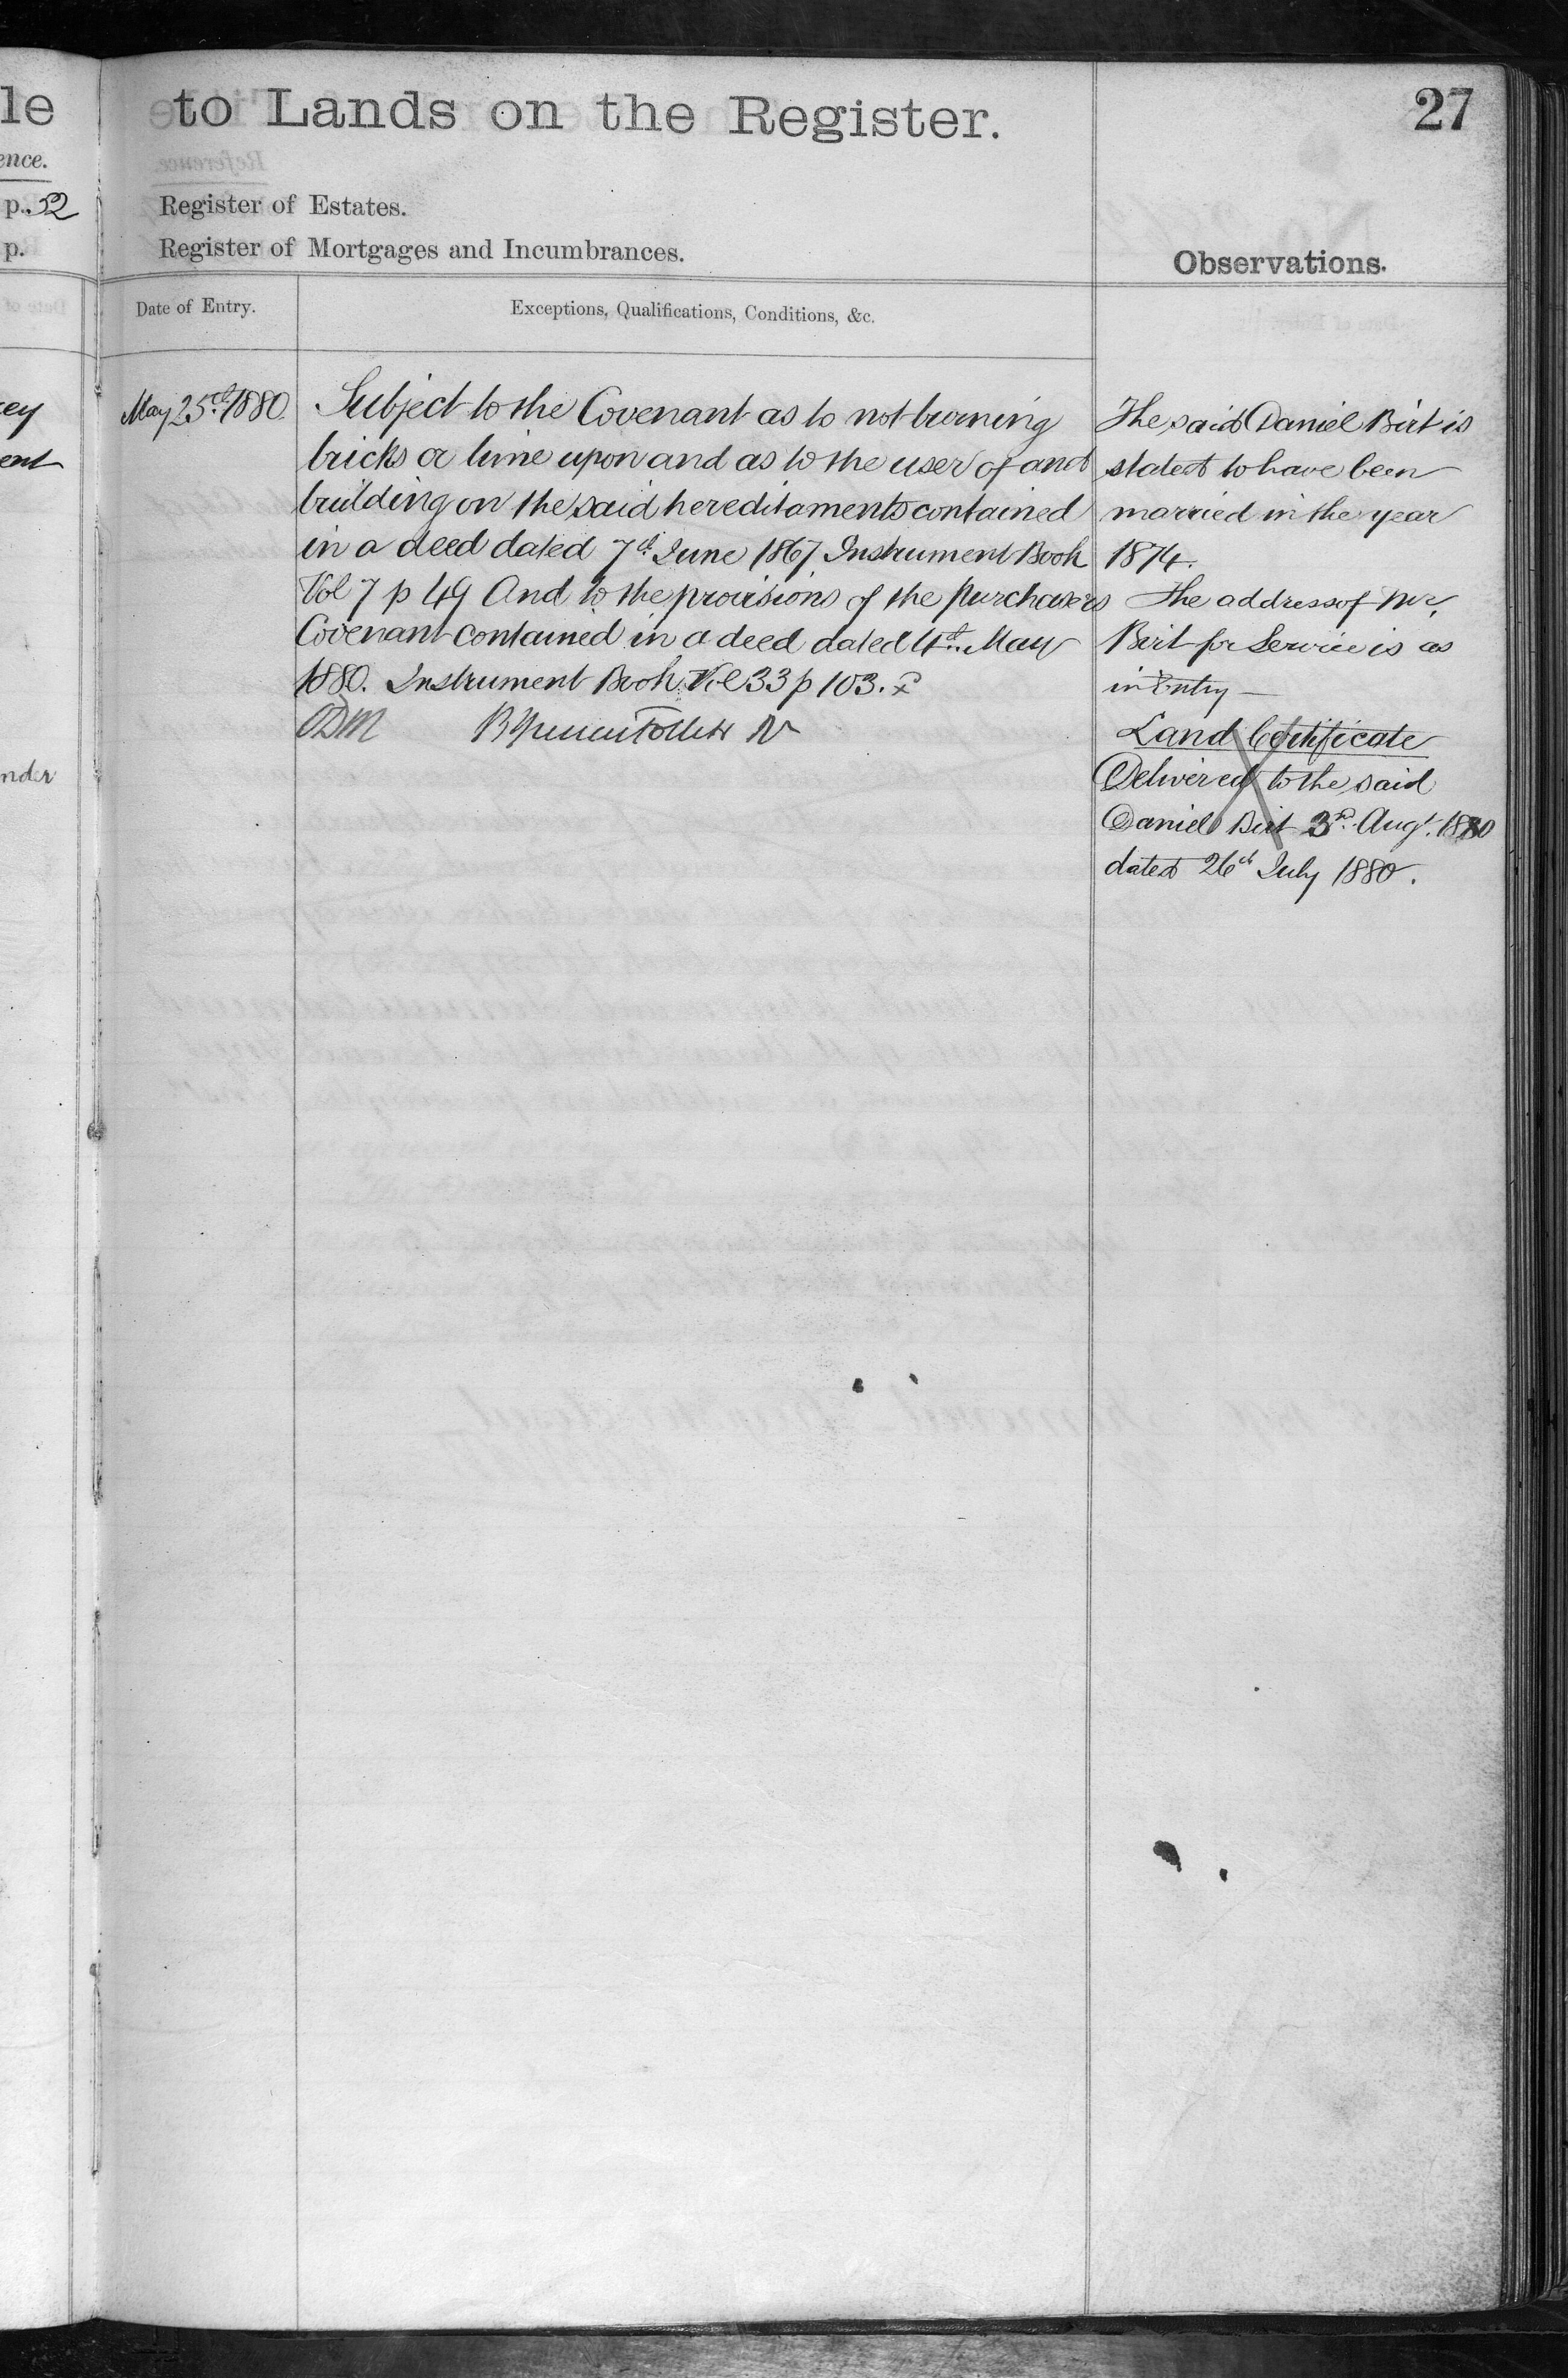 le
ence.
p. 52
p.
ey
ent
nder
to Lands on the Register.
27
Register of Estates.
Register of Mortgages and Incumbrances.
Observations.
Date of Entry.
Exceptions, Qualifications, Conditions, &c.
May 25th 1880.
Subject to the Covenant as to not burning
bricks or lime upon and as to the user of and
building on the said hereditaments contained
in a deed dated 7th June 1867 Instrument Book
Vol 7 p 49 And to the provisions of the purchasers
Covenant contained in a deed dated 4th May
1880. Instrument Book Vol 33 p 103.
The said Daniel Birt is
stated to have been
married in the year
1874.
The address of Mr.
Birt for Service is as
in Entry —
Land Certificate
Delivered to the said
Daniel Birt 3rd Augt. 1880
dated 26th July 1880.